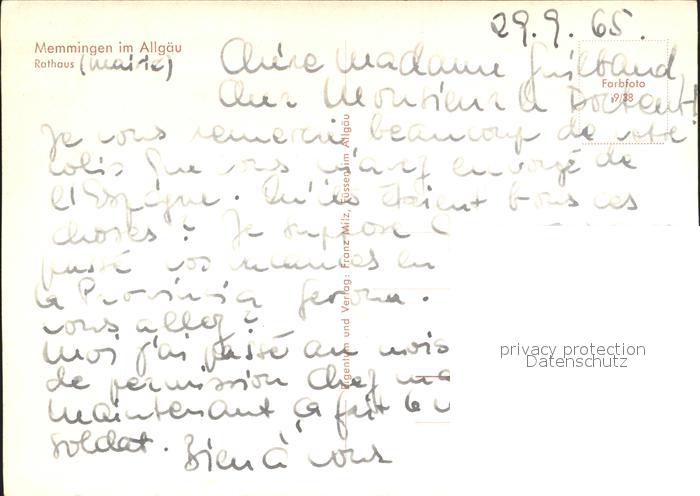 29.9.65.
Memmingen im Allgäu
Rathaus (mairie)
Chère Madame Guilbaud,
Cher Monsieur le Docteur!
Farbfoto
9/38
Je vous remercie beaucoup de votre
colis que vous m'avez envoyé de
l'Espagne. Qu'ils étaient bons ces
choses? Je suppose
passé vos vacances en
la Provincia Gerona.
vous allez?
Moi j'ai passé au mois
de permission chez ma
Maintenant ça fait le
soldat.
Bien à vous
Eigentum und Verlag: Franz Milz, Füssen im Allgäu
privacy protection
Datenschutz